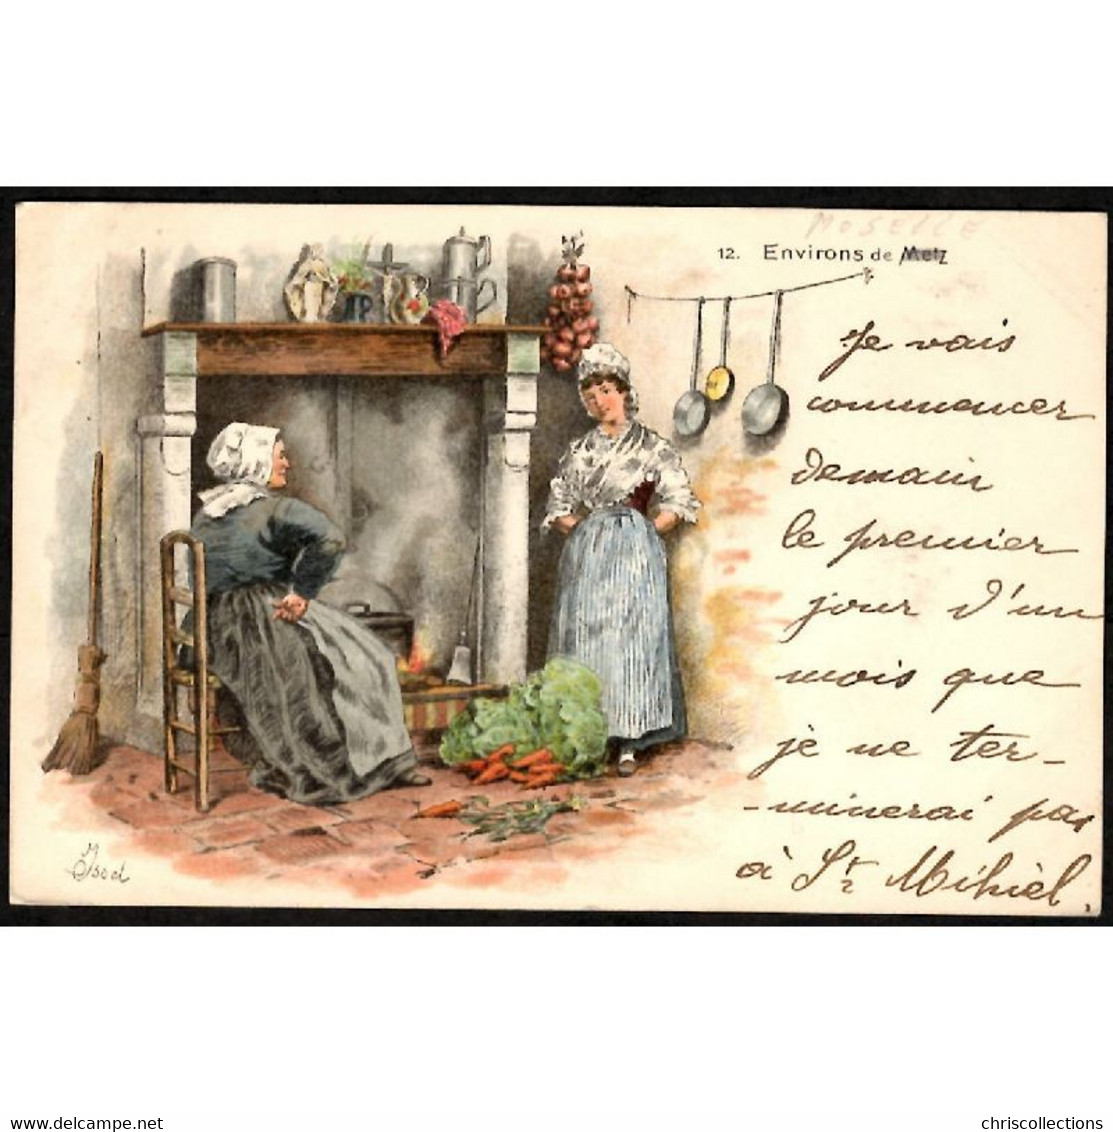 MOSELLE
12. Environs de Metz
Je vais
commencer
demain
le premier
jour d'un
mois que
je ne ter-
-minerai pas
à St Mihiel.
delcampe.net
chriscollections